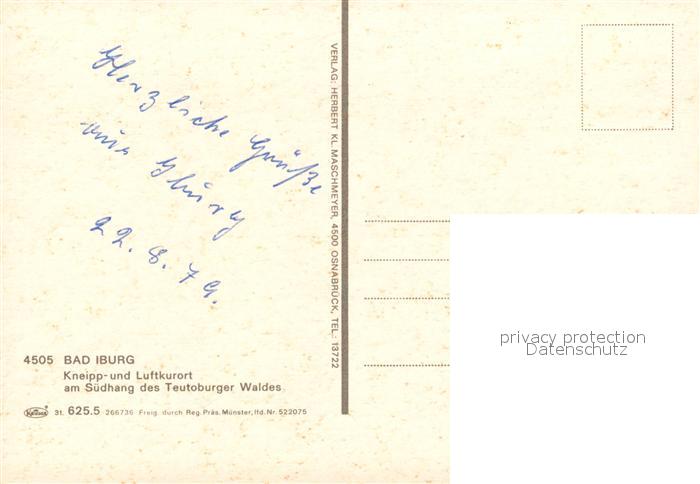 Herzliche Grüße
aus Iburg
22.8.79.
VERLAG: HERBERT KL. MASCHMEYER, 4500 OSNABRÜCK, TEL.: 13722
4505 BAD IBURG
Kneipp- und Luftkurort
am Südhang des Teutoburger Waldes
Krüger 31. 625.5 266736 Freig. durch Reg. Präs. Münster, lfd. Nr. 522075
privacy protection
Datenschutz